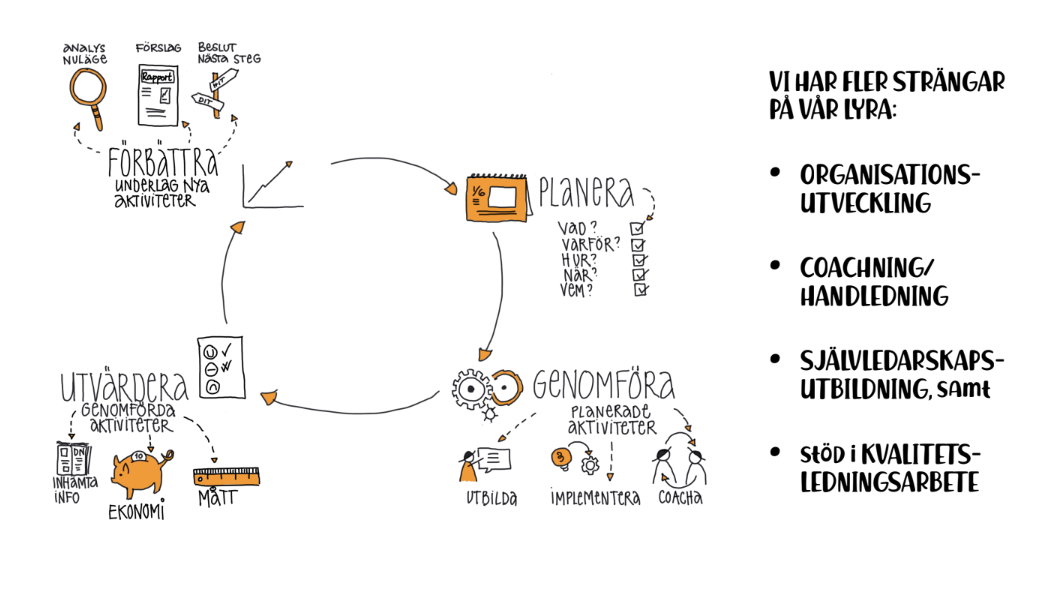 ANALYS
NULÄGE
FÖRSLAG
BESLUT
NÄSTA STEG
Rapport
DIT
DIT
FÖRBÄTTRA
UNDERLAG NYA
AKTIVITETER
1/6
PLANERA
VAD?
VARFÖR?
HUR?
NÄR?
VEM?
GENOMFÖRA
PLANERADE
AKTIVITETER
UTBILDA
IMPLEMENTERA
COACHA
UTVÄRDERA
GENOMFÖRDA
AKTIVITETER
DN
INHÄMTA
INFO
10
EKONOMI
MÅTT
VI HAR FLER STRÄNGAR
PÅ VÅR LYRA:
• ORGANISATIONS-
UTVECKLING
• COACHNING/
HANDLEDNING
• SJÄLVLEDARSKAPS-
UTBILDNING, SAMT
• STÖD i KVALITETS-
LEDNINGSARBETE